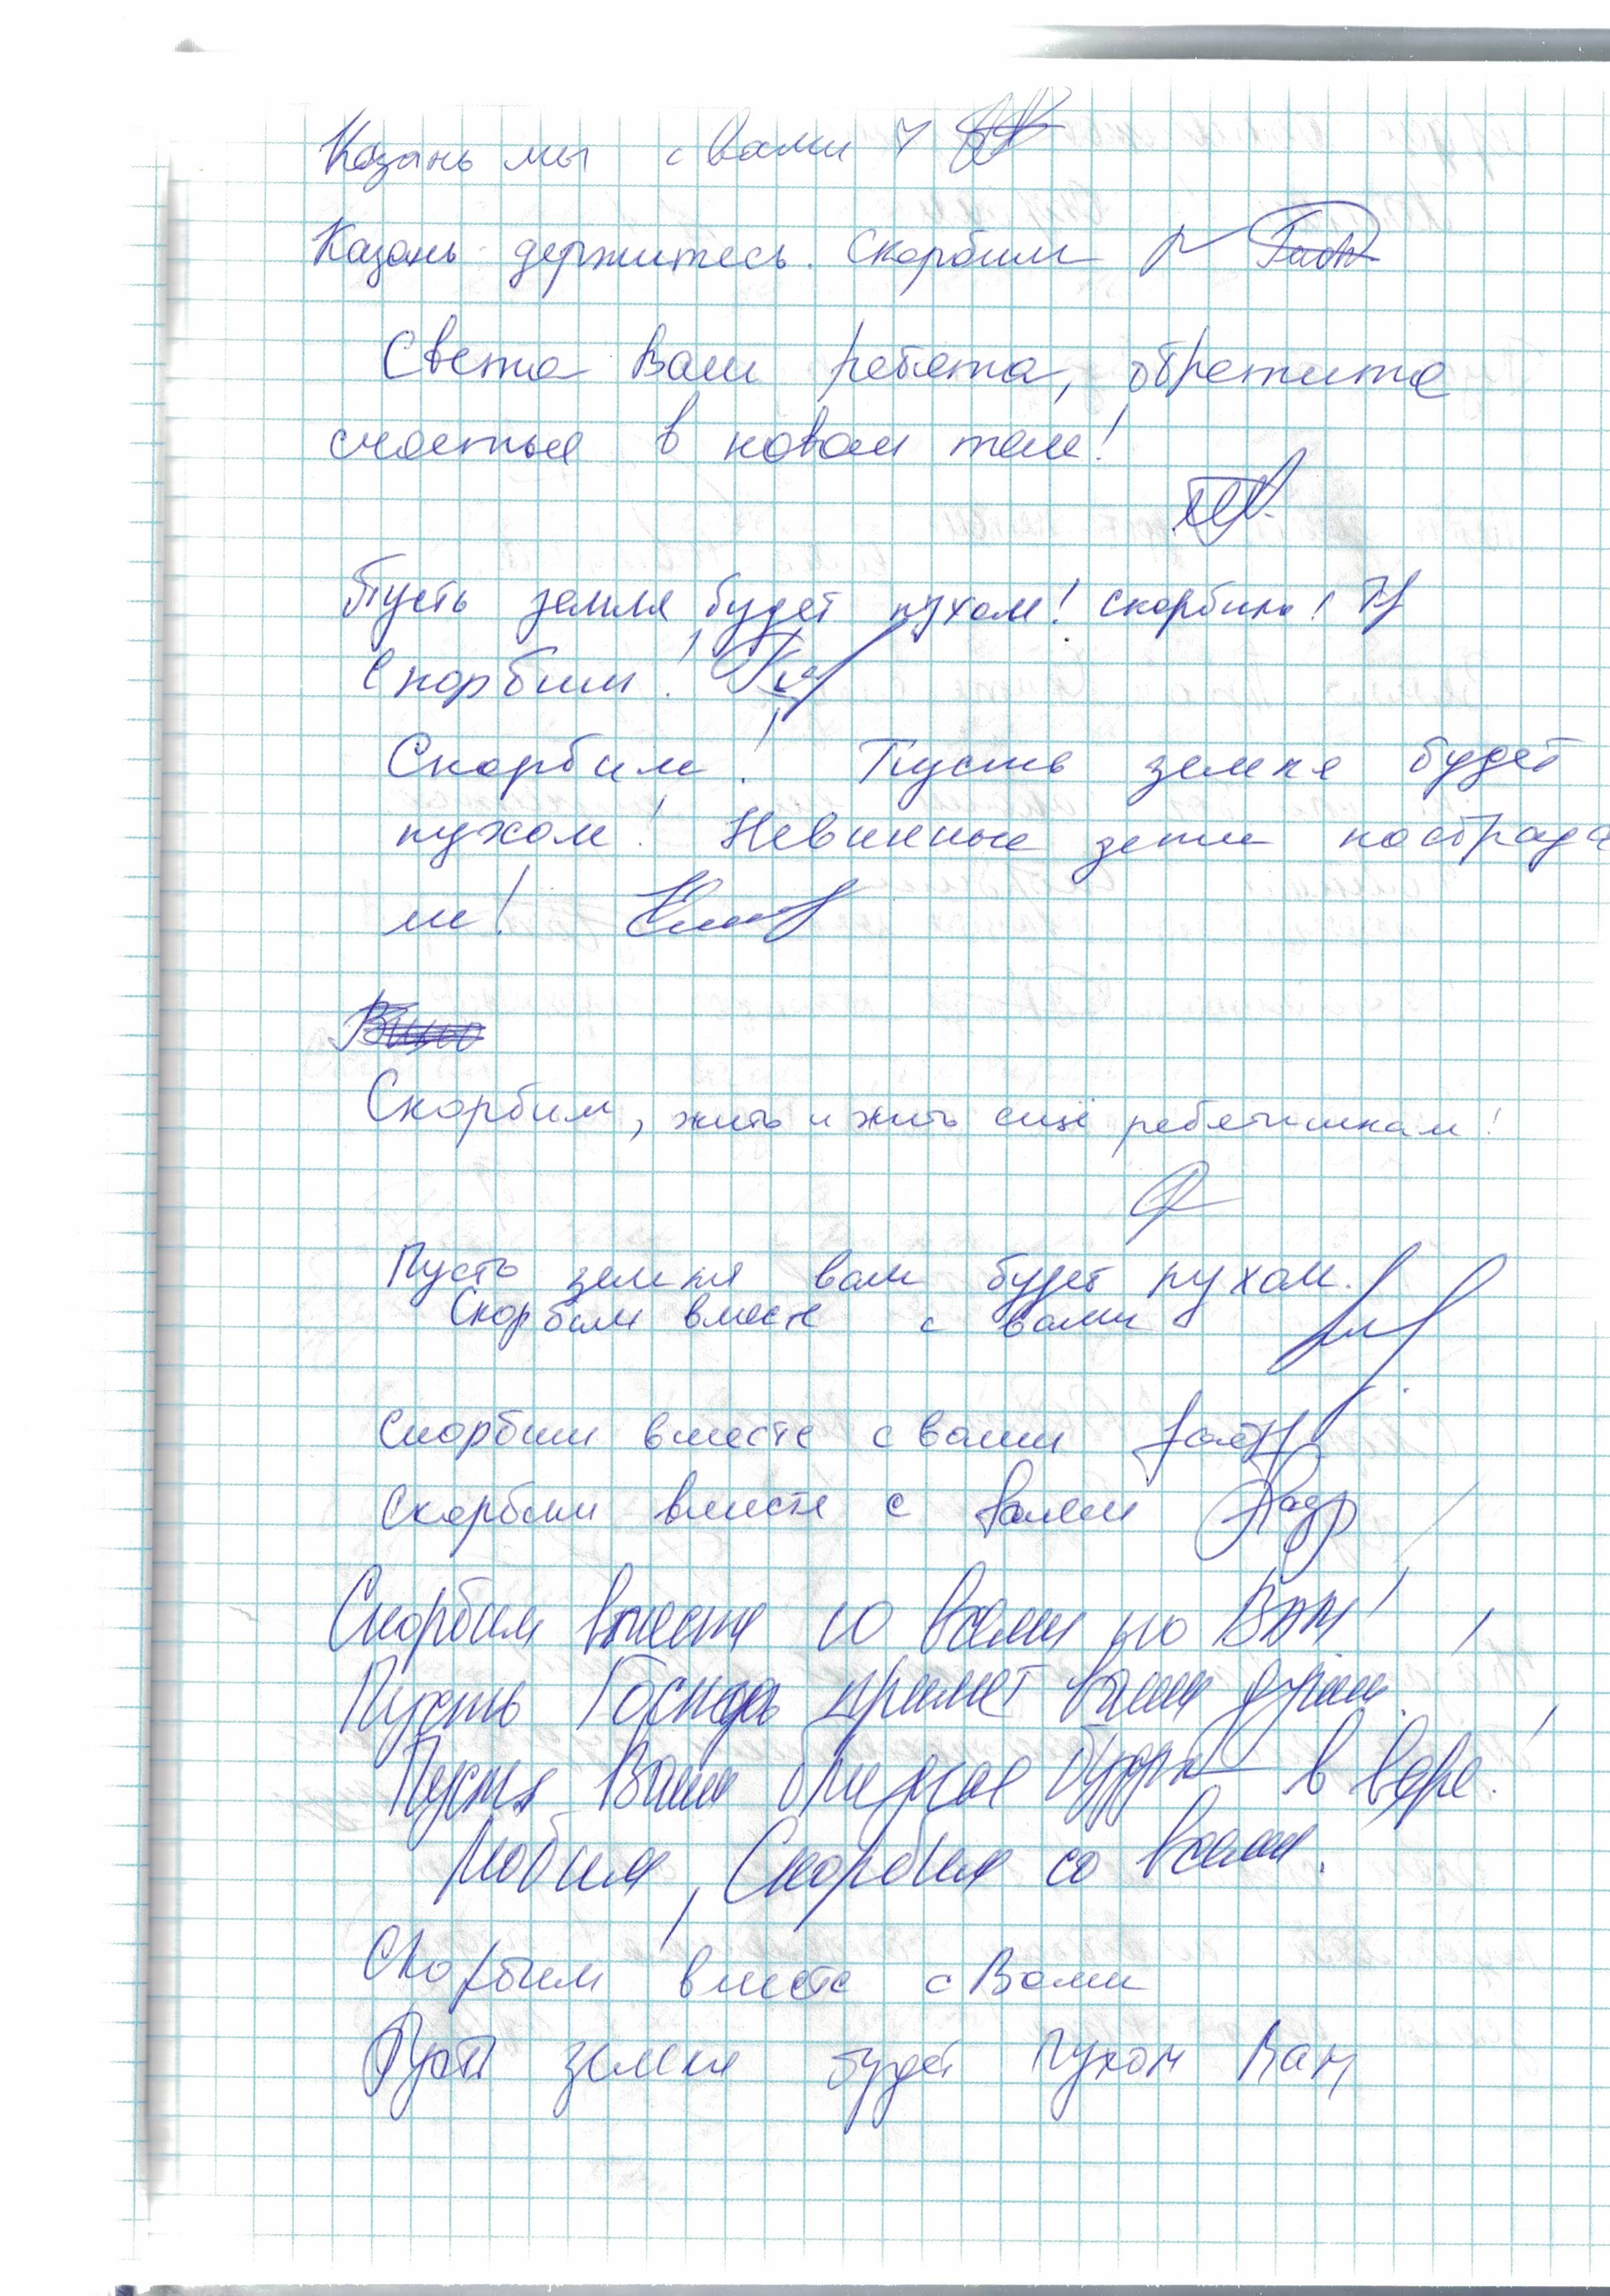 Казань мы с вами
Казань держитесь. Скорбим
Света Вам ребята, обретите
счастье в новом теле!
Пусть земля будет пухом! скорбим!
Скорбим!
Скорбим! Пусть земля будет
пухом! Невинные дети пострада
ли!
Скорбим, жить и жить ещё ребятишкам!
Пусть земля вам будет пухом.
Скорбим вместе с вами
Скорбим вместе с вами
Скорбим вместе с вами
Скорбим вместе со всеми по Вам!
Пусть Господь примет ваши души!
Пусть Ваши близкие будут в вере!
Любим, Скорбим со всеми.
Скорбим вместе с Вами
Пусть земля будет пухом Вам